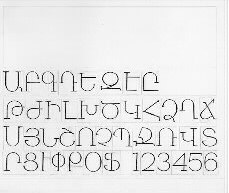 ԱԲԳԴԵԶԷԸ
ԹԺԻԼԽԾԿՀՁՂՃ
ՄՅՆՇՈՉՊՋՌՎՏ
ՐՑՒՓՔՕՖ 123456